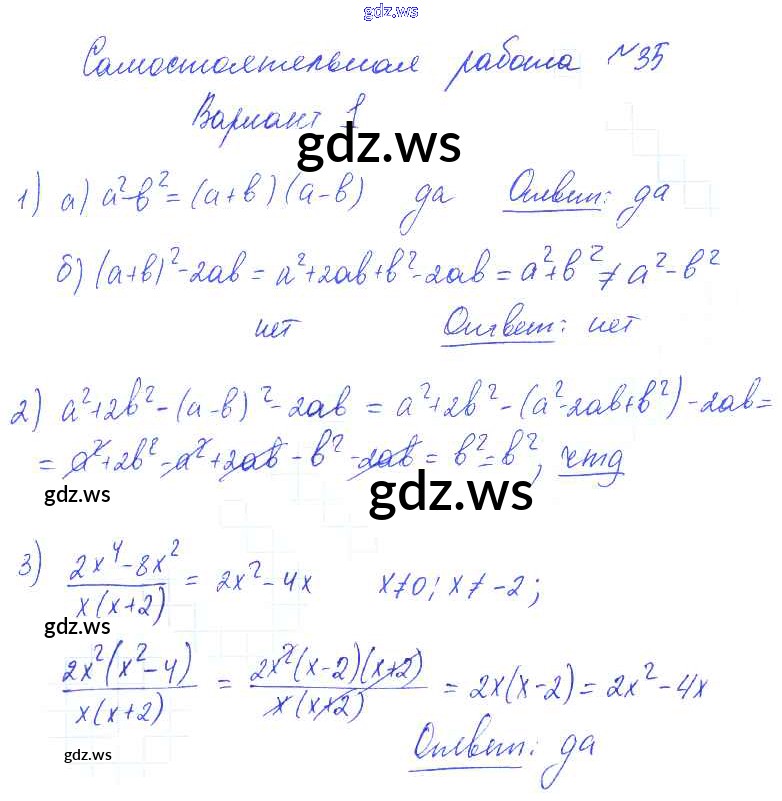 gdz.ws
Самостоятельная работа №35
Вариант 1
gdz.ws
1) а) a²-b² = (a+b)(a-b) да Ответ: да
б) (a+b)²-2ab = a²+2ab+b²-2ab = a²+b² ≠ a²-b²
нет Ответ: нет
2) a²+2b²-(a-b)²-2ab = a²+2b²-(a²-2ab+b²)-2ab=
= a²+2b²-a²+2ab-b²-2ab = b²=b², чтд
gdz.ws gdz.ws
3) (2x⁴-8x²)/(x(x+2)) = 2x²-4x x≠0; x≠-2;
gdz.ws
(2x²(x²-4))/(x(x+2)) = (2x²(x-2)(x+2))/(x(x+2)) = 2x(x-2) = 2x²-4x
gdz.ws Ответ: да